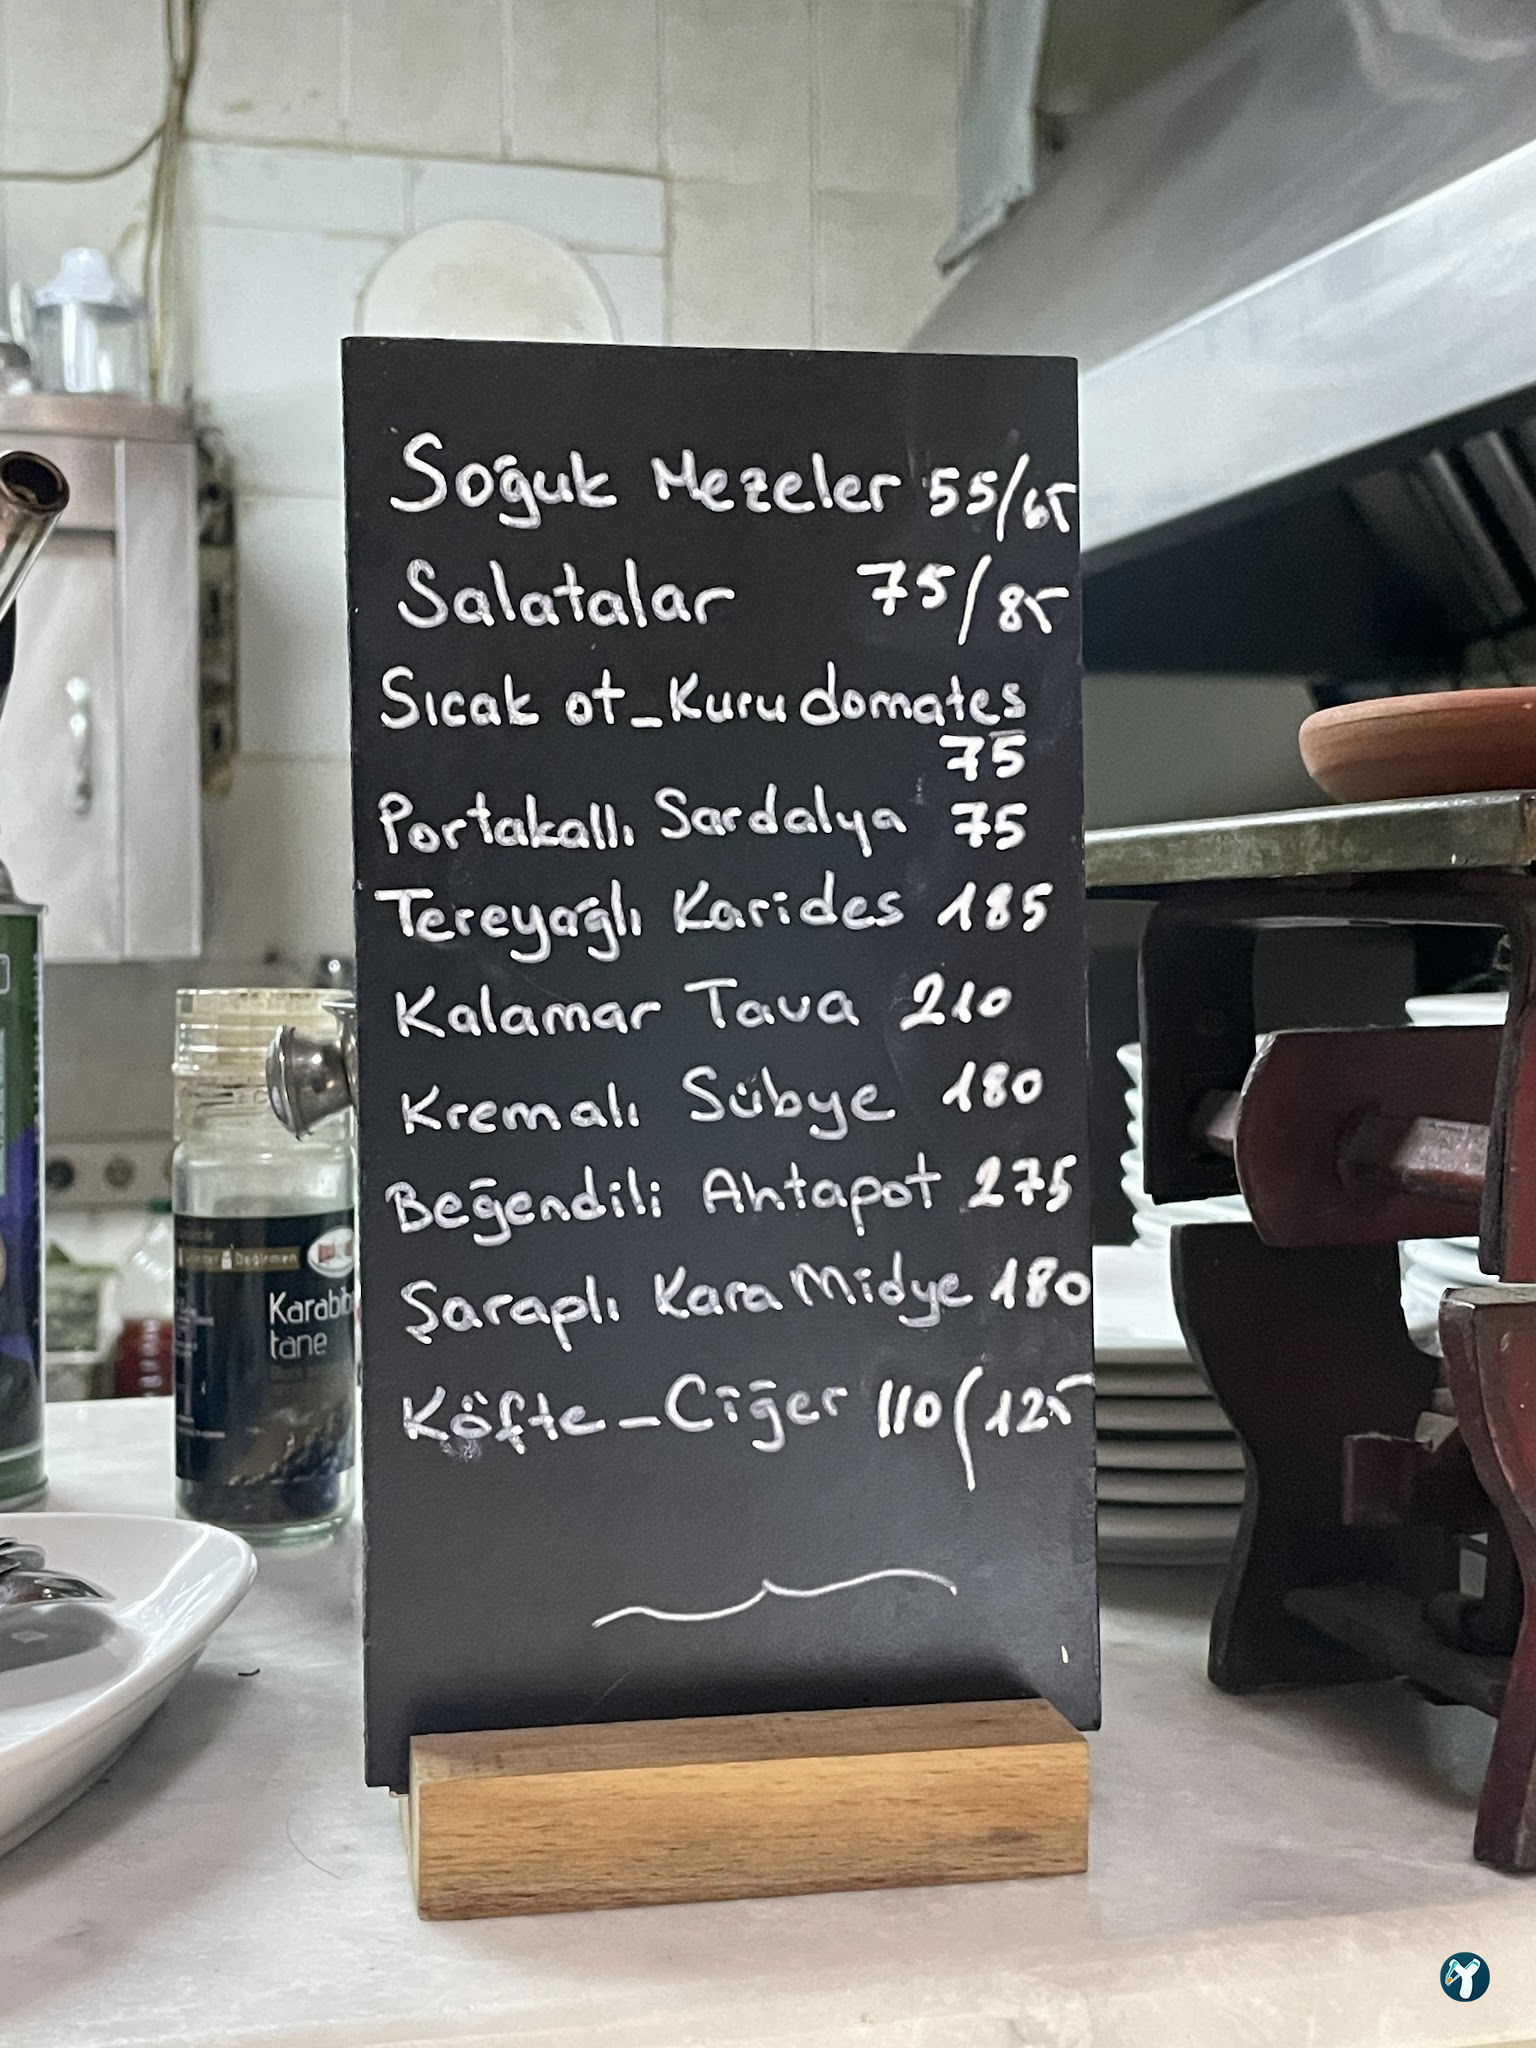 Soğuk Mezeler 55/65
Salatalar 75/85
Sıcak ot_Kuru domates
75
Portakallı Sardalya 75
Tereyağlı Karides 185
Kalamar Tava 210
Kremalı Sübye 180
Beğendili Ahtapot 275
Şaraplı Kara Midye 180
Köfte_Ciğer 110/125
Değirmen
Karabib
tane